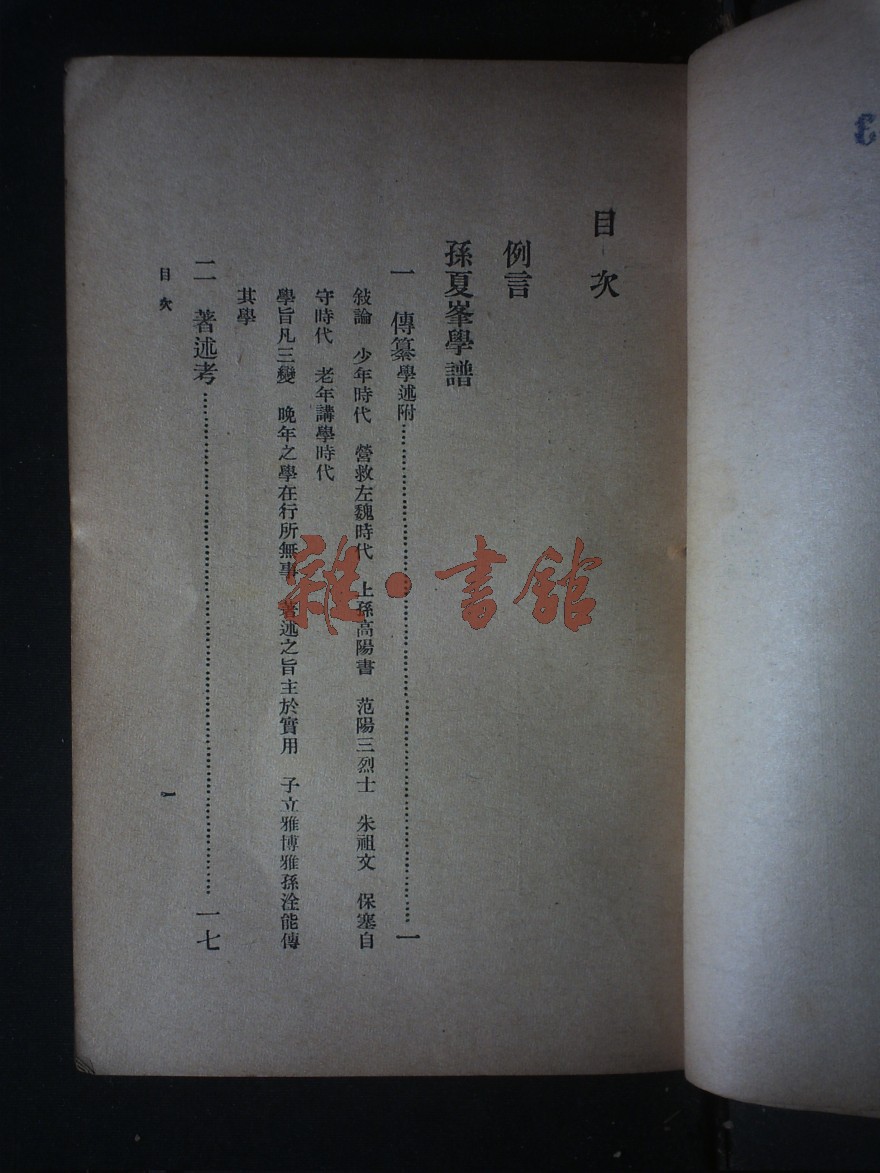 目次
例言
孫夏峯學譜
一 傳纂學述附……一
敍論 少年時代 營救左魏時代 上孫高陽書 范陽三烈士 朱祖文 保塞自
守時代 老年講學時代
學旨凡三變 晚年之學在行所無事 著述之旨主於實用 子立雅博雅孫洤能傳
其學
二 著述考……一七
目次
一
雜·書館
3